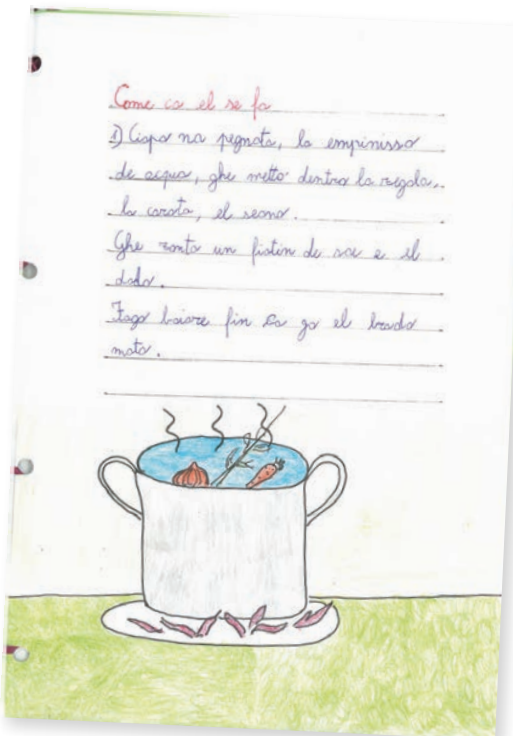 Come ca el se fa
1) Ciapo na pegnata, la empinisso
de acqua, ghe metto dentro la segola,
la carota, el seano.
Ghe zonto un fiatin de sae e el
dado.
Fago boiare fin ca go el brodo